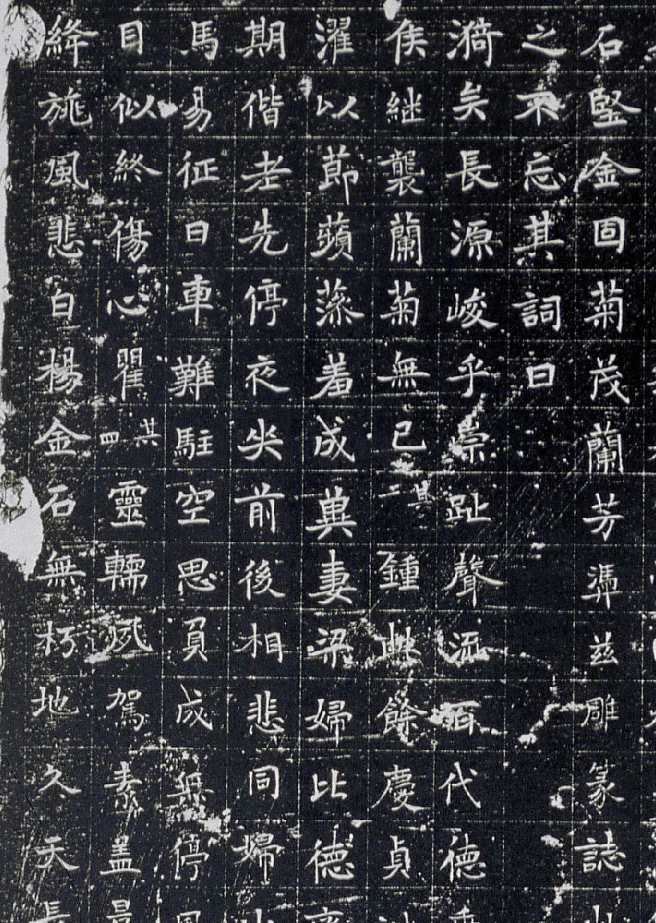 石堅金固菊茂蘭芳憑茲雕篆誌
之不忘其詞曰
漪矣長源峻乎崇趾聲流百代德
侯継襲蘭菊無已其二鍾此餘慶貞
濯以節蘋蒸羞成萁妻梁婦比德
期偕老先停夜㘴前後相悲同歸
馬易征日車難駐空思負成無停
目似終傷心瞿其四靈轜夙駕素盖
絳旐風悲白楊金石無朽地久天長